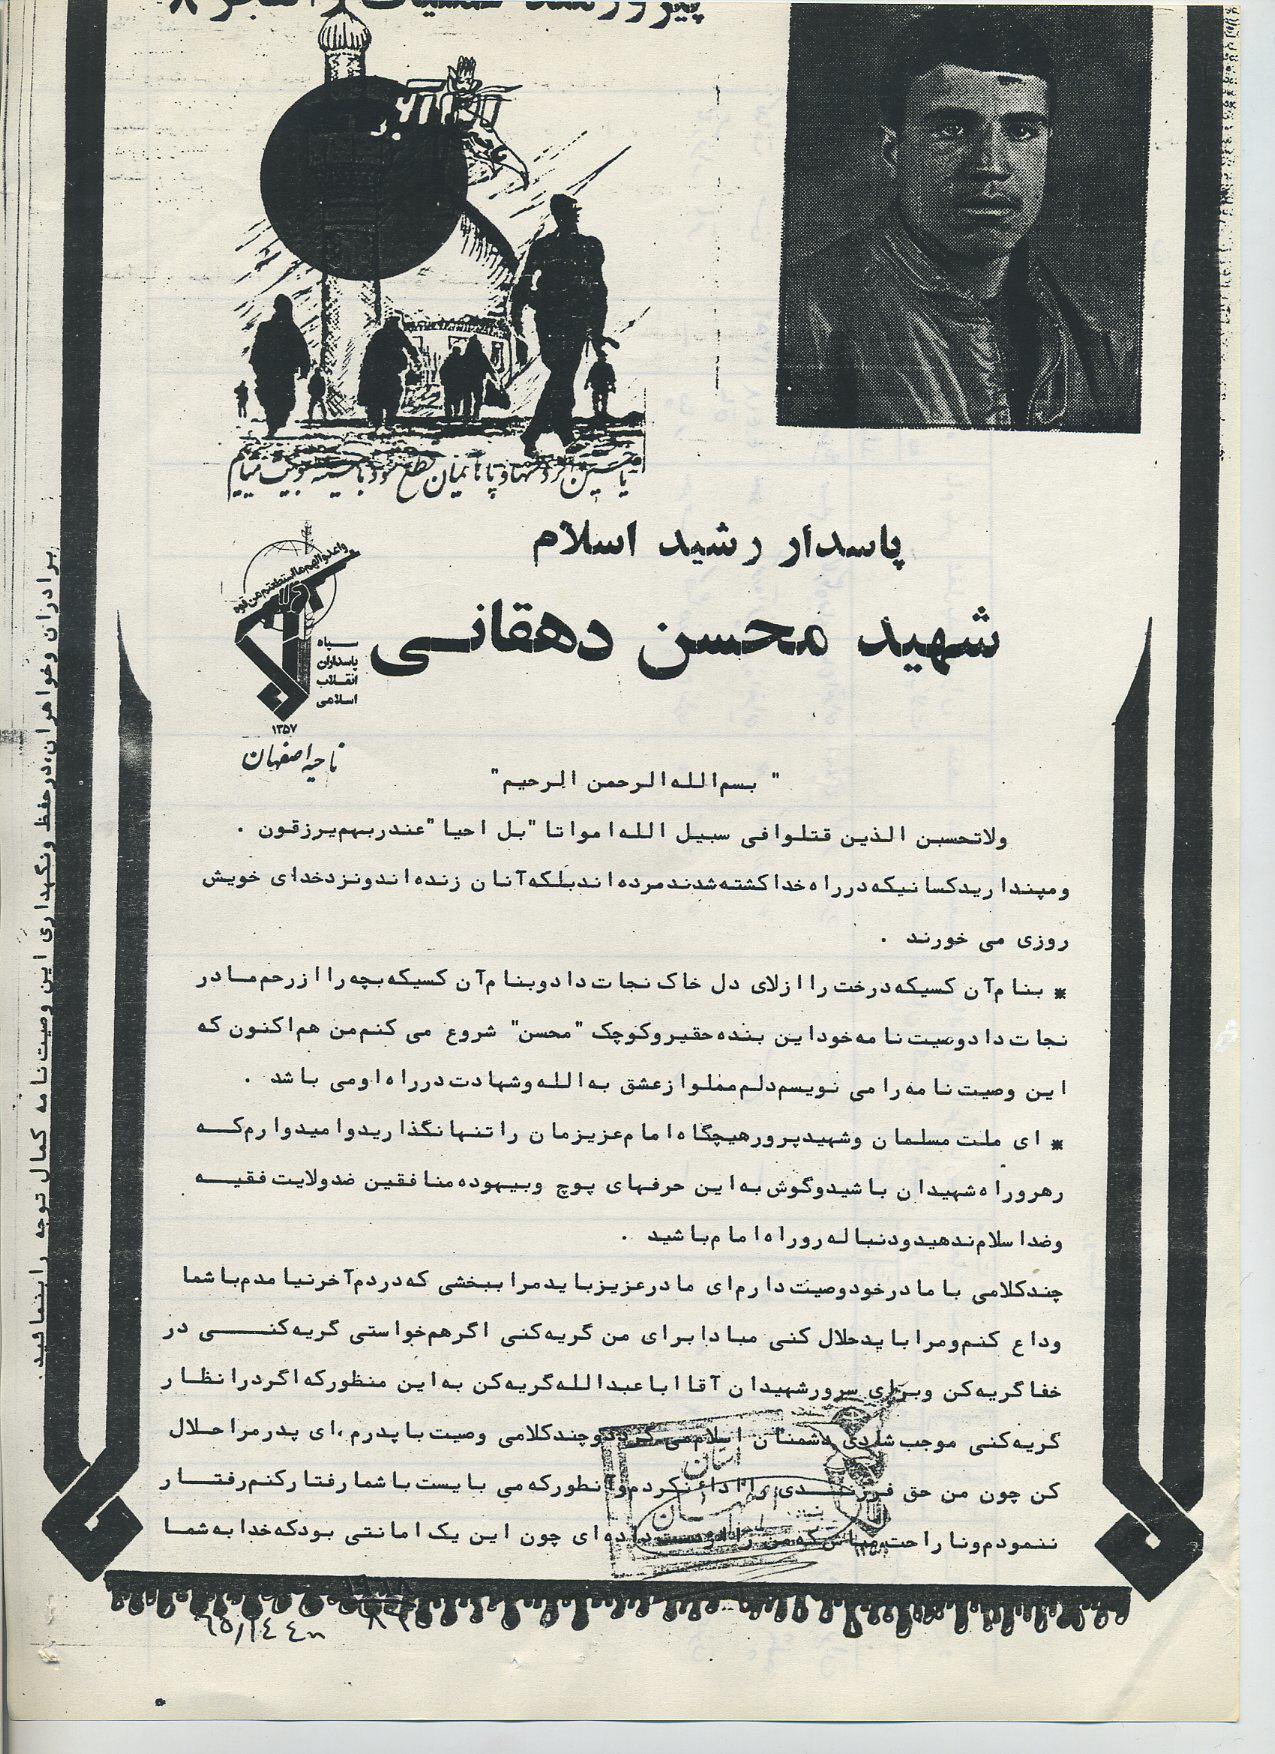 یا حسین اگر دستها و پاهایمان قطع شود با سینه بسویت میآییم
پاسدار رشید اسلام
شهید محسن دهقانی
واعدوا لهم ما استطعتم من قوه
سپاه
پاسداران
انقلاب
اسلامی
۱۳۵۷
ناحیه اصفهان
" بسم الله الرحمن الرحیم "
ولاتحسبن الذین قتلوا فی سبیل الله امواتا" بل احیا" عندربهم یرزقون .
ومپندارید کسانیکه درراه خداکشته شدند مرده اند بلکه آنان زنده اند ونزد خدای خویش
روزی می خورند .
* بنام آن کسیکه درخت را ازلای دل خاک نجات داد وبنام آن کسیکه بچه را از رحم مادر
نجات داد وصیت نامه خود این بنده حقیر وکوچک "محسن" شروع می کنم من هم اکنون که
این وصیت نامه را می نویسم دلم مملو ازعشق به الله وشهادت درراه او می باشد .
* ای ملت مسلمان وشهیدپرور هیچگاه امام عزیزمان را تنها نگذارید وامیدوارم کـه
رهرو راه شهیدان باشید وگوش به این حرفهای پوچ وبیهوده منافقین ضدولایت فقیـه
وضداسلام ندهید ودنباله رو راه امام باشید .
چندکلامی با مادرخود وصیت دارم ای مادرعزیز باید مرا ببخشی که دردم آخر نیامدم باشما
وداع کنم ومرا باید حلال کنی مبادا برای من گریه کنی اگرهم خواستی گریه کنـی در
خفا گریه کن وبرای سرور شهیدان آقا اباعبدالله گریه کن به این منظور که اگر درانظـار
گریه کنی موجب شادی دشمنان اسلام می گردد وچندکلامی وصیت با پدرم ،ای پدر مرا حـلال
کن چون من حق فرزنـدی را اداء نکردم وآنطور که می بایست باشما رفتار کنم رفتـار
ننمودم وناراحت مباش که من را ازدست داده ای چون این یک امانتی بود که خدا به شما
برادران وخواهران،درحفظ ونگهداری این وصیت نامه کمال توجه را بنمائید.
استان
اصفهان